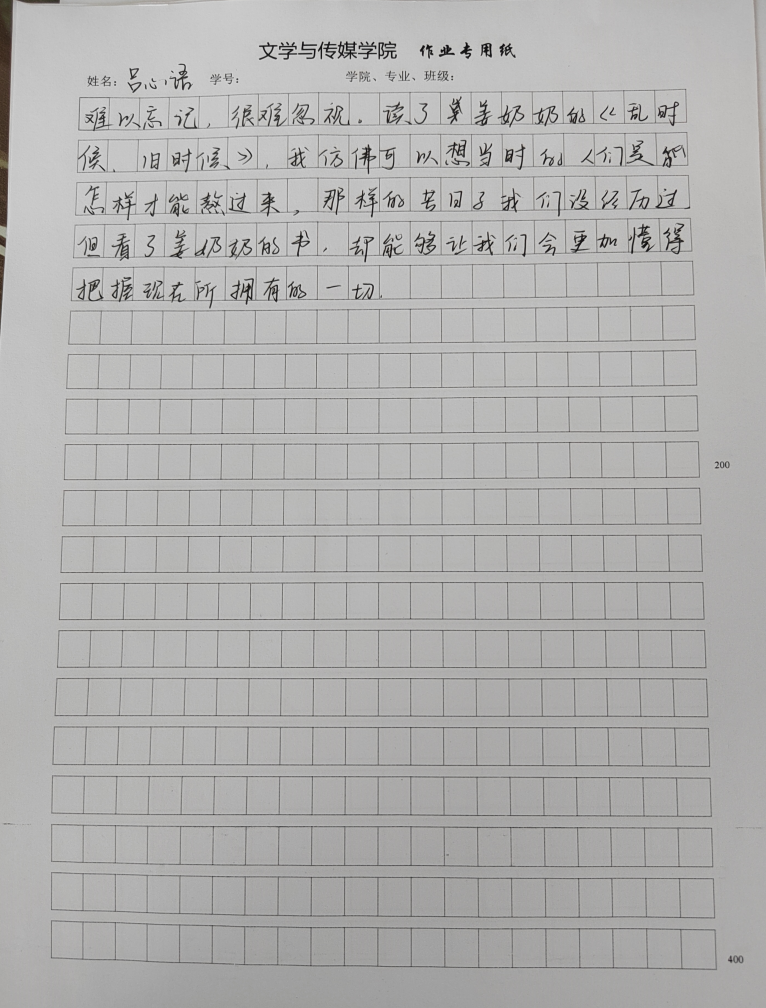 文学与传媒学院 作业专用纸
姓名：吕心语 学号： 学院、专业、班级：
难以忘记，很难忽视。读了姜奶奶的《乱时
候、旧时候》，我仿佛可以想当时的人们是
怎样才能熬过来，那样的苦日子我们没经历过，
但看了姜奶奶的书，却能够让我们会更加懂得
把握现在所拥有的一切。
200
400